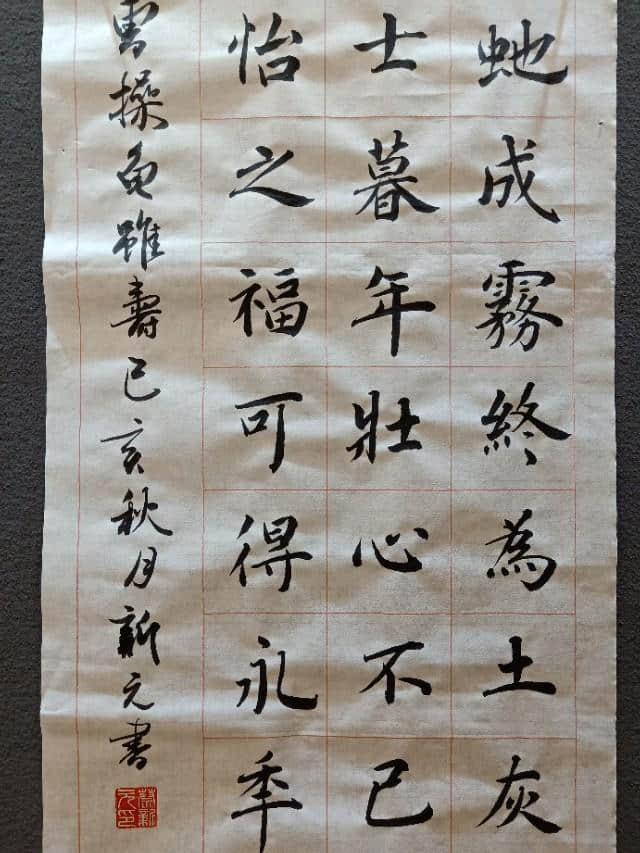 虵成霧終為土灰
士暮年壯心不已
怡之福可得永秊
曹操龟雖壽己亥秋月新元書